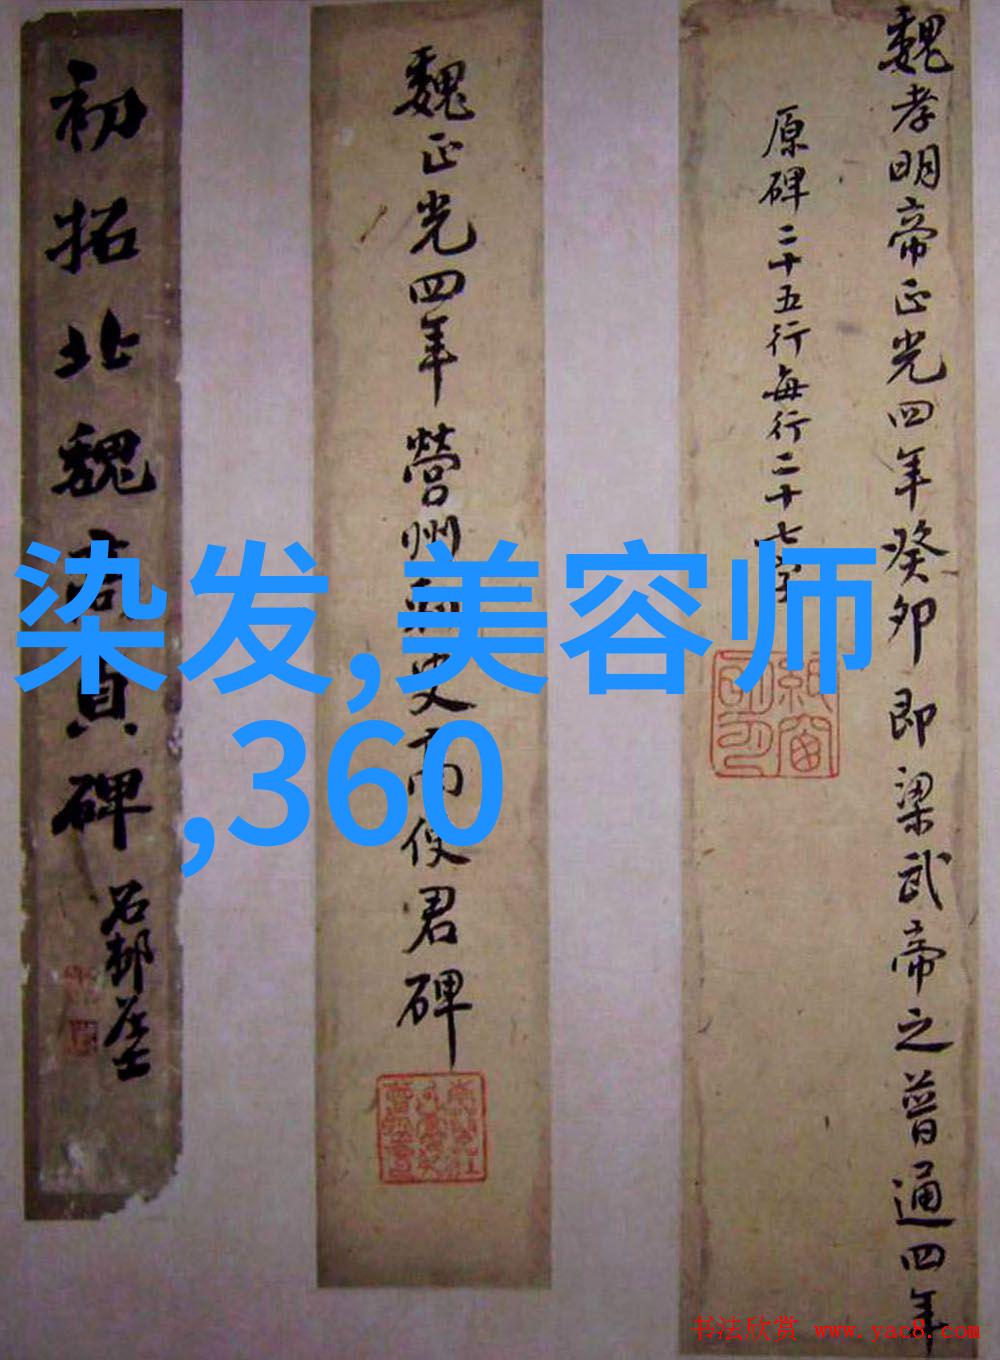 魏孝明帝正光四年癸卯即梁武帝之普通四年
原碑二十五行每行二十七字
魏正光四年營州刺史高使君碑
初拓北魏高貞碑
石邨
染发,美容师
,360
书法欣赏 www.yac8.com